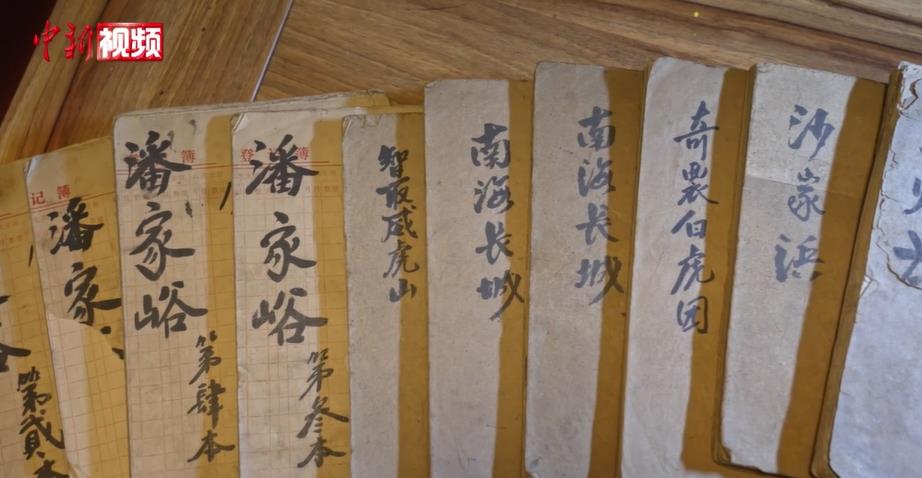 中新视频
第贰本
记簿
潘家
簿
潘家峪
第肆本
登记簿
潘家峪
第叁本
智取威虎山
南海长城
南海长城
奇袭白虎团
沙家浜